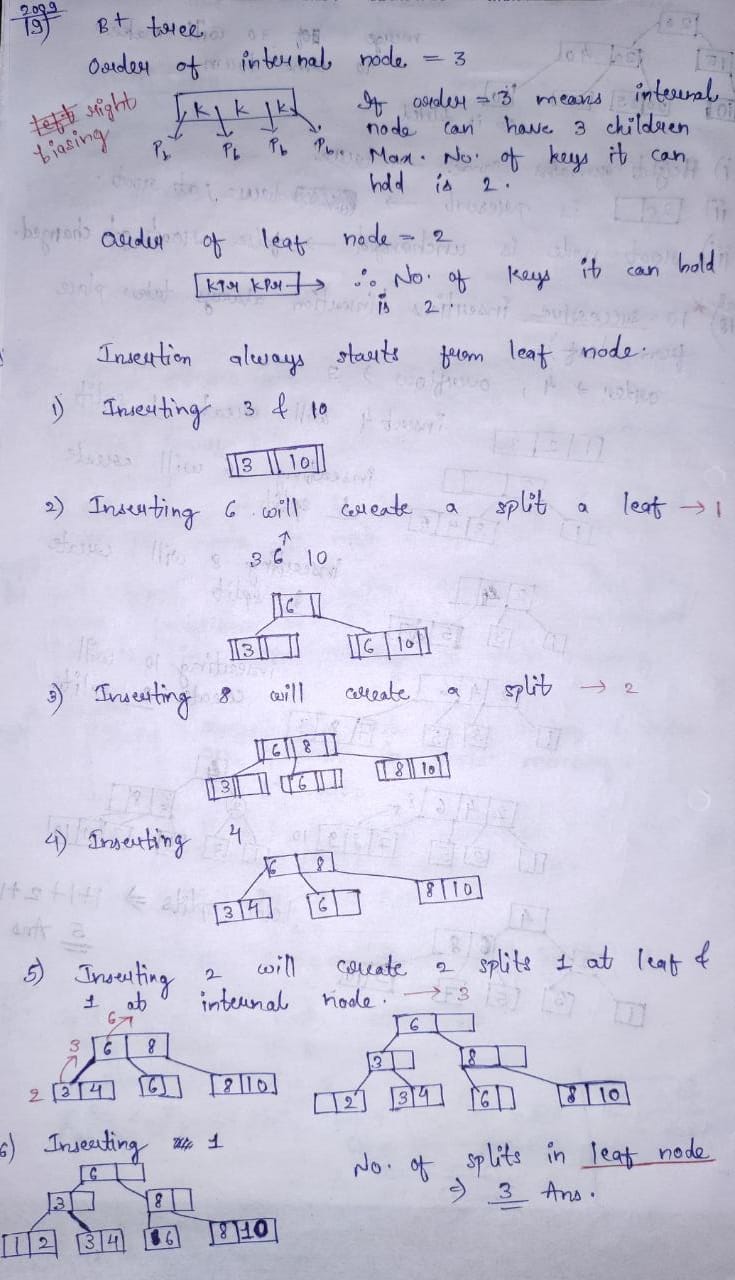 2099
19)
B+ tree.
Order of internal node = 3
left right
biasing
k k k
Pb Pb Pb Pb
If order = '3' means internal
node can have 3 children
Max. No. of keys it can
hold is 2.
order of leaf node = 2
KPr KPr → ∴ No. of keys it can hold
is 2.
Insertion always starts from leaf node.
1) Inserting 3 & 10
3 10
2) Inserting 6 will create a split a leaf → 1
3 6 10
6
3 6 10
3) Inserting 8 will create a split → 2
6 8
3 6 8 10
4) Inserting 4
6 8
3 4 6 8 10
5) Inserting 2 will create 2 splits 1 at leaf &
1 at internal node. → 3
6
3 6 8
2 3 4 6 8 10
6
3 8
2 3 4 6 8 10
6) Inserting 1
6
3 8
1 2 3 4 6 8 10
No. of splits in leaf node
⇒ 3 Ans.